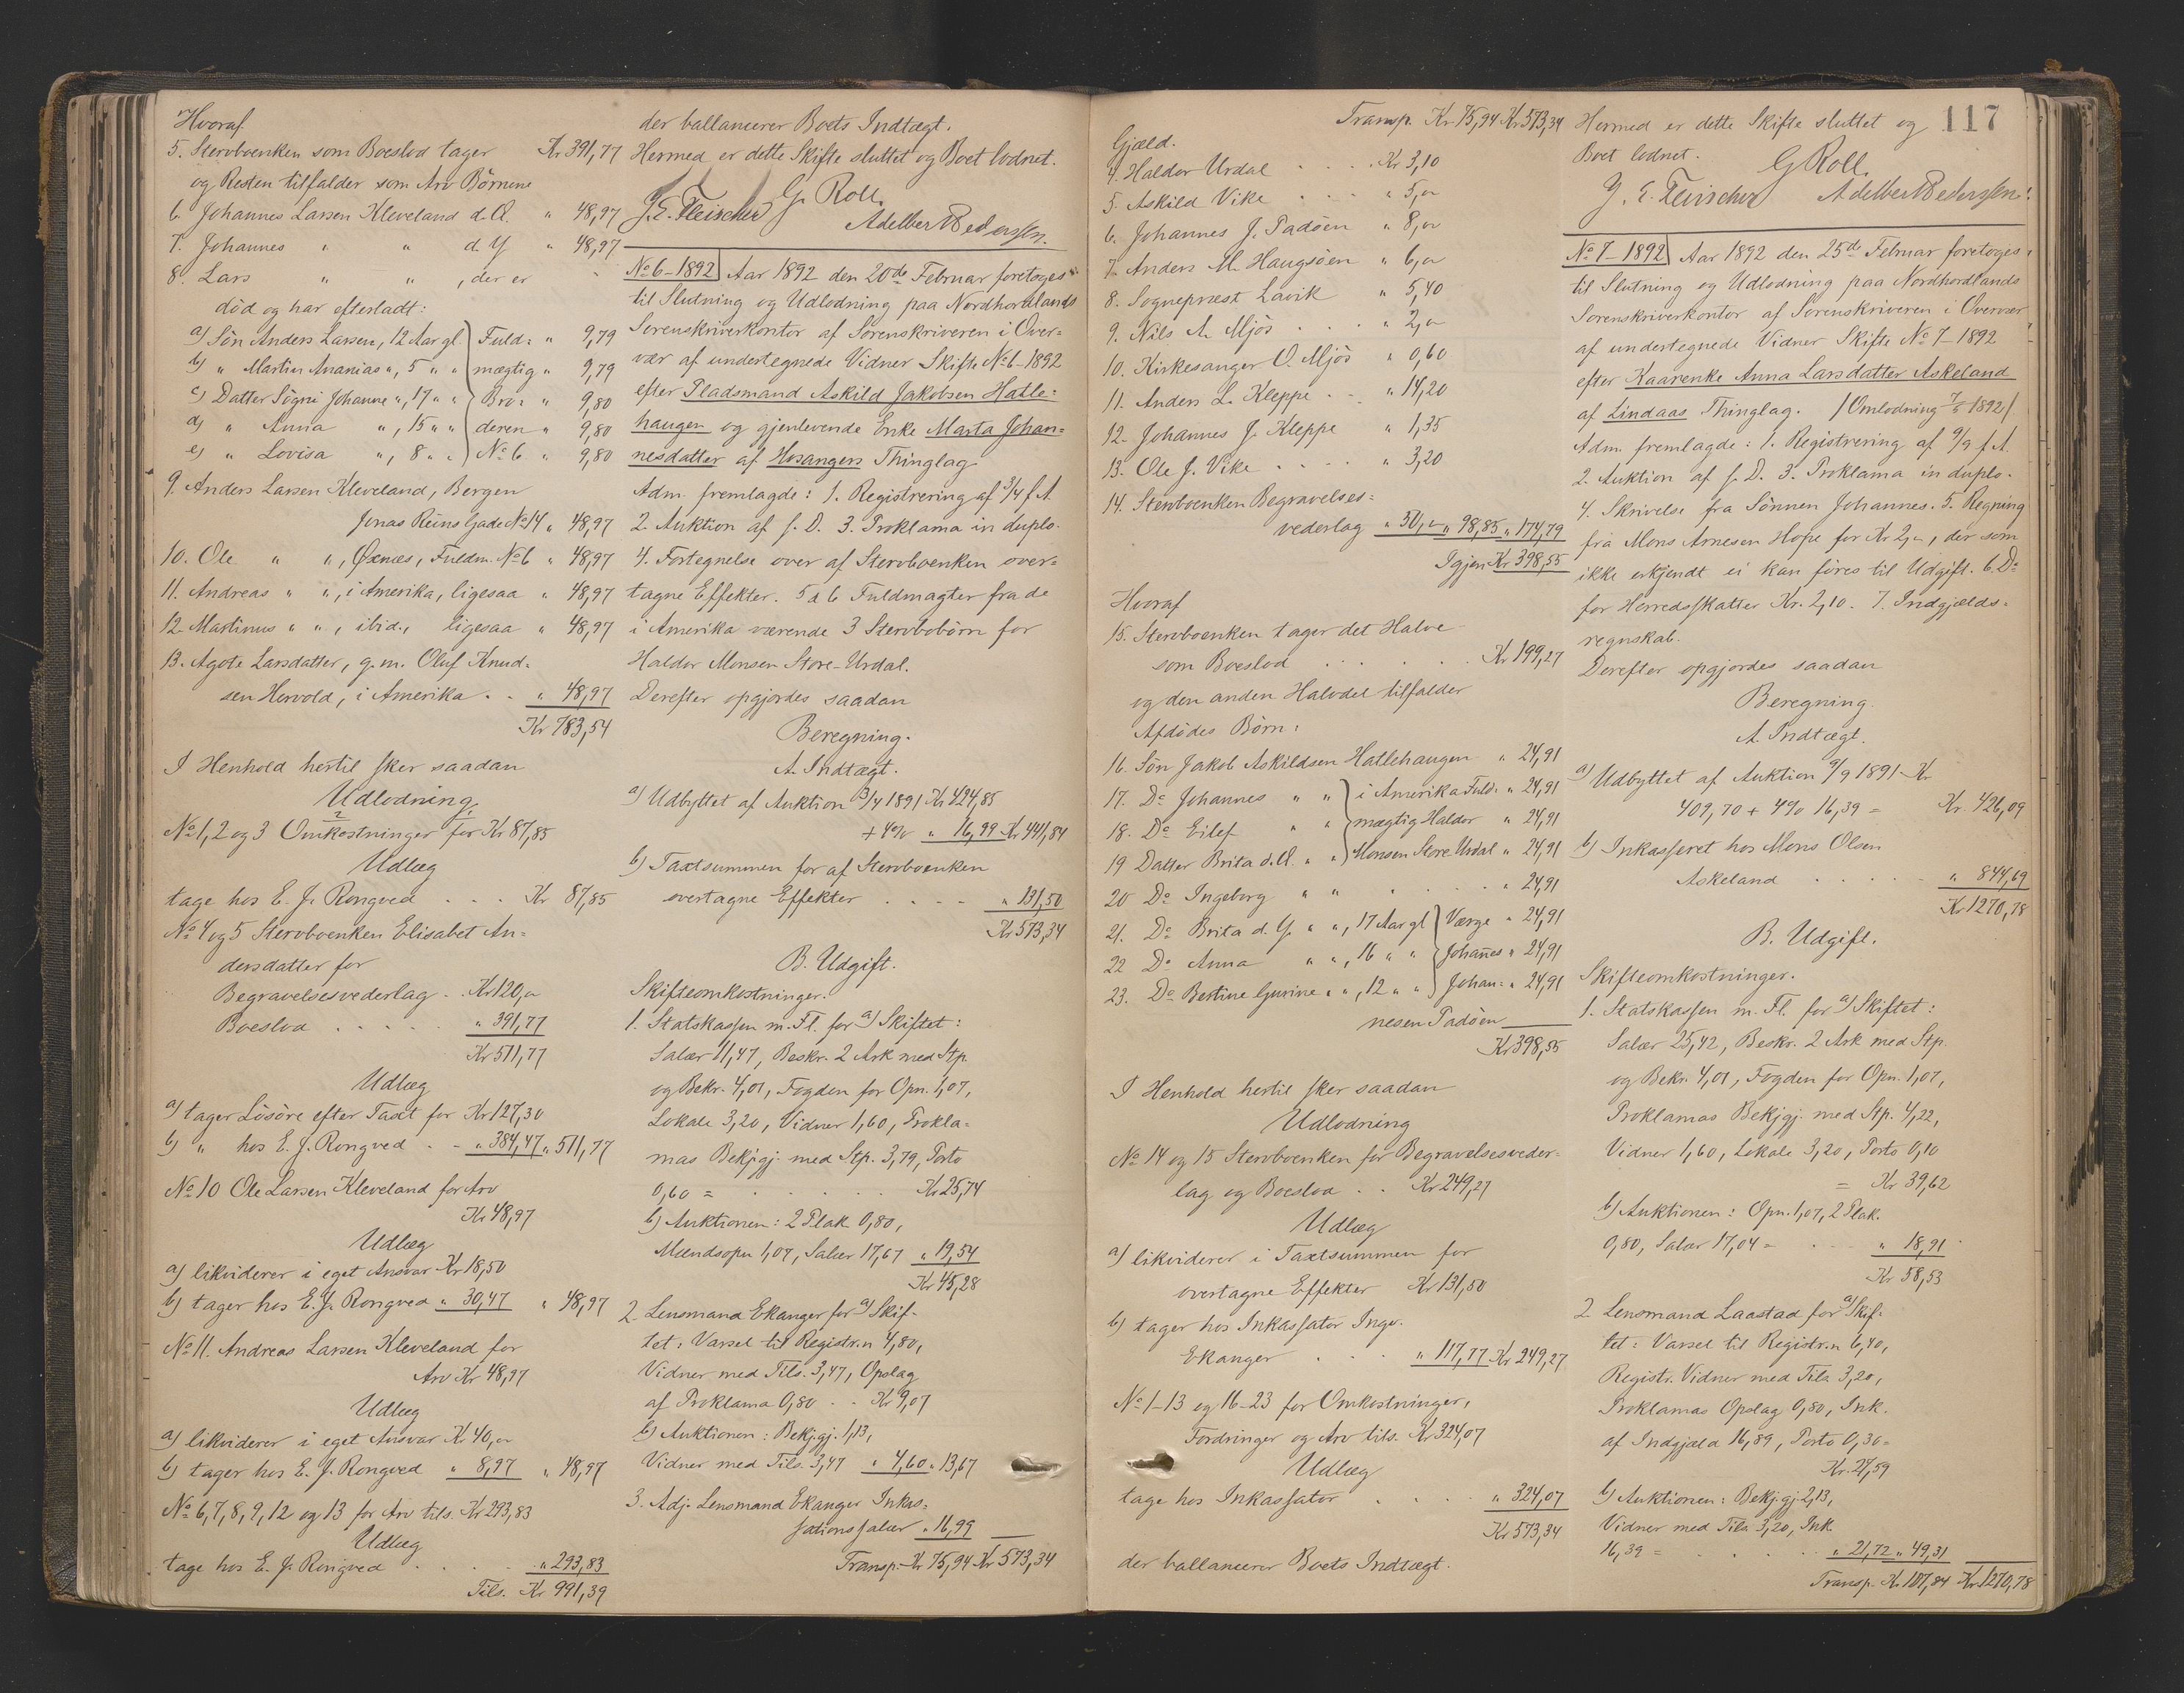 Hvoraf
5. Stervboenken som Boeslod tager Kr 391,77
og Resten tilfalder som Arv Börnene
6. Johannes Larsen Kleveland d. Æ. " 48,97
7. Johannes " " d. Y. " 48,97
8. Lars " " , der er
död og har efterladt:
a) Sön Anders Larsen, 12 Aar gl. Fuld= " 9,79
b) " Martin Ananias ", 5 " " mægtig " 9,79
c) Datter Sögni Johanne ", 17 " " Bro= " 9,80
d) " Anna ", 15 " " deren " 9,80
e) " Lovisa ", 8 " " No 6 " 9,80
9. Anders Larsen Kleveland, Bergen
Jonas Reins Gade No 14 " 48,97
10. Ole " " , Öxnæs, Fuldm. No 6 " 48,97
11. Andreas " " , i Amerika, ligesaa " 48,97
12. Martinus " " , ibid., ligesaa " 48,97
13. Agote Larsdatter, g. m. Oluf Knud=
sen Hervold, i Amerika . . " 48,97
Kr 783,54
I Henhold hertil sker saadan
Udlodning.
No 1, 2 og 3 Omkostninger for Kr 87,85
Udlæg
tage hos E. J. Rongved . . . Kr 87,85
No 4 og 5 Stervboenken Elisabet An=
dersdatter for
Begravelsesvederlag . . Kr 120,"
Boeslod . . . . . " 391,77
Kr 511,77
Udlæg
a) tager Lösöre efter Taxt for Kr 127,30
b) " hos E. J. Rongved . . " 384,47 " 511,77
No 10 Ole Larsen Kleveland for Arv
Kr 48,97
Udlæg
a) likviderer i eget Ansvar Kr 18,50
b) tager hos E. J. Rongved " 30,47 " 48,97
No 11. Andreas Larsen Kleveland for
Arv Kr 48,97
Udlæg
a) likviderer i eget Ansvar Kr 40,"
b) tager hos E. J. Rongved " 8,97 " 48,97
No 6, 7, 8, 9, 12 og 13 for Arv tils. Kr 293,83
Udlæg
tage hos E. J. Rongved . . . . " 293,83
Tils. Kr 991,39
der ballancerer Boets Indtægt.
Hermed er dette Skifte sluttet og Boet lodnet.
G. Roll.
J. E. Fleischer Adelbert Pedersen.
No 6 - 1892 Aar 1892 den 20de Februar foretoges
til Slutning og Udlodning paa Nordhordlands
Sorenskriverkontor af Sorenskriveren i Over=
vær af undertegnede Vidner Skifte No 6 - 1892
efter Pladsmand Askild Jakobsen Hatle=
haugen og gjenlevende Enke Marta Johan=
nesdatter af Hosangers Thinglag.
Adm. fremlagde: 1. Registrering af 3/4 f. A.
2. Auktion af s. D. 3. Proklama in duplo.
4. Fortegnelse over af Stervboenken over=
tagne Effekter. 5 a 6 Fuldmagter fra de
i Amerika værende 3 Stervbobörn for
Haldor Monsen Store-Urdal.
Derefter opgjordes saadan
Beregning.
A. Indtægt.
a) Udbyttet af Auktion 3/4 1891 Kr 424,85
+ 4% " 16,99 Kr 441,84
b) Taxtsummen for af Stervboenken
overtagne Effekter . . . . " 131,50
Kr 573,34
B. Udgift.
Skifteomkostninger.
1. Statskassen m. Fl. for a) Skiftet:
Salær 11,47, Beskr. 2 Ark med Stp.
og Bekr. 4,01, Fogden for Opn. 1,07,
Lokale 3,20, Vidner 1,60, Prokla=
mas Bekjgj. med Stp. 3,79, Porto
0,60 = . . . . . Kr 25,74
b) Auktionen: 2 Plak. 0,80,
Mændsopn 1,07, Salær 17,67 " 19,54
Kr 45,28
2. Lensmand Ekanger for a) Skif=
tet: Varsel til Registr.n 4,80,
Vidner med Tils. 3,47, Opslag
af Proklama 0,80 . . Kr 9,07
b) Auktionen: Bekjgj. 1,13,
Vidner med Tils. 3,47 " 4,60 " 13,67
3. Adj. Lensmand Ekanger Inkas=
sationssalær " 16,99
Transp. Kr 75,94 Kr 573,34
Transp. Kr 75,94 Kr 573,34
Gjæld.
4. Haldor Urdal . . . . Kr 3,10
5. Askild Vike . . . " 5,"
6. Johannes J. Padöen " 8,"
7. Anders M. Haugsöen " 6,"
8. Sogneprest Lavik " 5,40
9. Nils A. Mjös . . . " 2,"
10. Kirkesanger O. Mjös " 0,60
11. Anders L. Kleppe . . " 14,20
12. Johannes J. Kleppe " 1,35
13. Ole J. Vike . . . . " 3,20
14. Stervboenken Begravelses=
vederlag " 50,"" 98,85 " 174,79
Igjen Kr 398,55
Hvoraf
15. Stervboenken tager det Halve
som Boeslod . . . . . Kr 199,27
og den anden Halvdel tilfalder
Afdödes Börn:
16. Sön Jakob Askildsen Hatlehaugen " 24,91
17. Do Johannes " " i Amerika Fuld= " 24,91
18. Do Eilef " " mægtig Haldor " 24,91
19 Datter Brita d. Æ. " " Monsen Store Urdal " 24,91
20 Do Ingeborg " " . . . " 24,91
21. Do Brita d. Y. " " , 17 Aar gl. Værge " 24,91
22 Do Anna " " , 16 " " Johannes " 24,91
23. Do Bertine Gurine " " , 12 " " Johan= " 24,91
nesen Padöen
Kr 398,55
I Henhold hertil sker saadan
Udlodning
No 14 og 15 Stervboenken for Begravelsesveder=
lag og Boeslod . . Kr 249,27
Udlæg
a) likviderer i Taxtsummen for
overtagne Effekter Kr 131,50
b) tager hos Inkassator Ingv.
Ekanger . . . " 117,77 Kr 249,27
No 1-13 og 16-23 for Omkostninger,
Fordringer og Arv tils. Kr 324,07
Udlæg
tage hos Inkassator . . . . " 324,07
Kr 573,34
der ballancerer Boets Indtægt.
117
Hermed er dette Skifte sluttet og
Boet lodnet.
G Roll.
J. E. Fleischer Adelbert Pedersen.
No 7 - 1892 Aar 1892 den 25de Februar foretoges
til Slutning og Udlodning paa Nordhordlands
Sorenskriverkontor af Sorenskriveren i Overvær
af undertegnede Vidner Skifte No 7 - 1892
efter Kaarenke Anna Larsdatter Askeland
af Lindaas Thinglag. /Omlodning 7/5 1892/.
Adm. fremlagde: 1. Registrering af 9/9 f. A.
2. Auktion af s. D. 3. Proklama in duplo.
4. Skrivelse fra Sönnen Johannes. 5. Regning
fra Mons Arnesen Hope for Kr 2,", der som
ikke erkjendt ei kan föres til Udgift. 6. Do
for Herredsskatter Kr. 2,10. 7. Indgjælds=
regnskab.
Derefter opgjordes saadan
Beregning.
A. Indtægt.
a) Udbyttet af Auktion 9/9 1891 Kr
409,70 + 4% 16,39 = Kr 426,09
b) Inkasseret hos Mons Olsen
Askeland . . . . " 844,69
Kr 1270,78
B. Udgift.
Skifteomkostninger.
1. Statskassen m. Fl. for a) Skiftet:
Salær 25,42, Beskr. 2 Ark med Stp.
og Bekr. 4,01, Fogden for Opn. 1,07,
Proklamas Bekjgj. med Stp. 4,22,
Vidner 1,60, Lokale 3,20, Porto 0,10
= Kr 39,62
b) Auktionen: Opn. 1,07, 2 Plak.
0,80, Salær 17,04 = . . " 18,91
Kr 58,53
2. Lensmand Laastad for a) Skif=
tet: Varsel til Registr.n 6,40,
Registr. Vidner med Tils. 3,20,
Proklamas Opslag 0,80, Ink.
af Indgjæld 16,89, Porto 0,30=
Kr. 27,59
b) Auktionen: Bekjgj. 2,13,
Vidner med Tils 3,20, Ink.
16,39 = . . . . " 21,72 " 49,31
Transp. Kr 107,84 Kr 1270,78